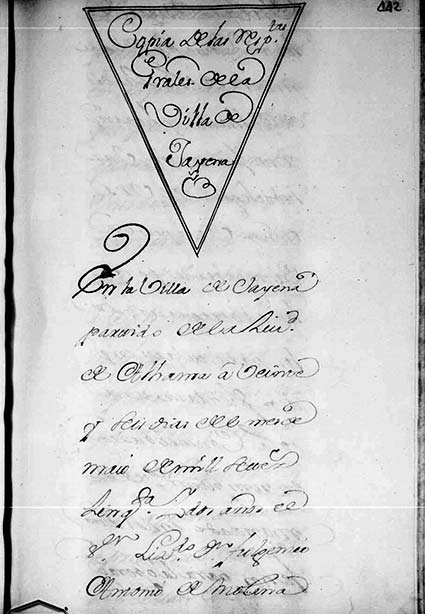 442
Copia de las Resp.tas
Grales. de la
Villa de
Jayena
En la Villa de Jayena
partido de la Ciud.d
de Alhama â veinte
y seis dias de el mes de
maio de mill setez.s
cinq.ta y dos años el
S.r Lizd.o D.n fulgencio
Antonio de Molina